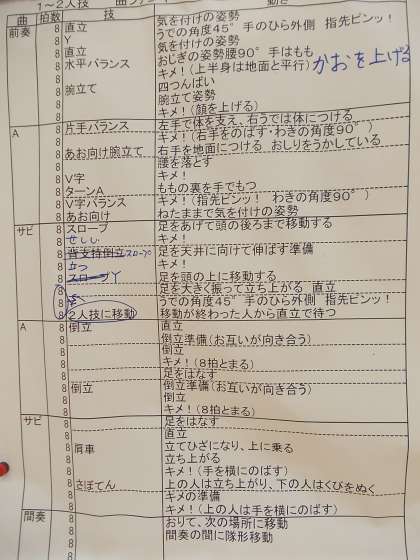 1～2人技
動き
曲 拍数 技
前奏 8 直立 気を付けの姿勢
8 Y うでの角度45° 手のひら外側 指先ピンッ！
8 直立 気を付けの姿勢
8 水平バランス おじぎの姿勢腰90° 手はもも
8 キメ！（上半身は地面と平行） かおを上げる
8 腕立て 四つんばい
8 腕立て姿勢
8 キメ！（顔を上げる）
A 8 片手バランス 左手で体を支え、右うでは体につける
8 キメ！（右手をのばす・わきの角度90°）
8 あお向け腕立て 右手を地面につける おしりをうかしている
8 腰を落とす
8 V字 キメ！
8 ターンA ももの裏を手でもつ
8 V字バランス キメ！（指先ピンッ！ わきの角度90°）
8 あお向け ねたままで気を付けの姿勢
サビ 8 スロープ 足をあげて頭の後ろまで移動する
8 キメ！
8 背支持倒立 スロープ 足を天井に向けて伸ばす準備
8 立つ キメ！
8 スロープ Y 足を頭の上に移動する
8 足を大きく振って立ち上がる 直立
8 うでの角度45° 手のひら外側 指先ピンッ！
8 2人技に移動 移動が終わった人から直立で待つ
A 8 倒立 直立
8 倒立準備（お互いが向き合う）
8 倒立
8 キメ！（8拍とまる）
8 足をはなす
8 倒立 倒立準備（お互いが向き合う）
8 倒立
8 キメ！（8拍とまる）
サビ 8 足をはなす
8 直立
8 肩車 立てひざになり、上に乗る
8 立ち上がる
8 キメ！（手を横にのばす）
8 さぼてん 上の人は立ち上がり、下の人はくびをぬく
8 キメの準備
8 キメ！（上の人は手を横にのばす）
間奏 8 おりて、次の場所に移動
8 間奏の間に隊形移動
8
8